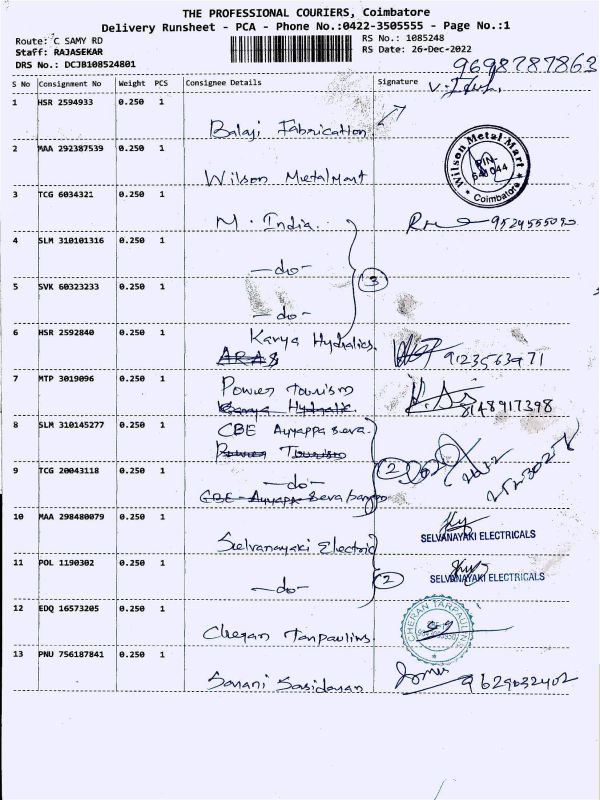 THE PROFESSIONAL COURIERS, Coimbatore
Delivery Runsheet - PCA - Phone No.:0422-3505555 - Page No.:1
Route: C SAMY RD
RS No.: 1085248
Staff: RAJASEKAR
RS Date: 26-Dec-2022
DRS No.: DCJB108524801
9698787863
S No Consignment No Weight PCS Consignee Details Signature
1 HSR 2594933 0.250 1
Balaji Fabrication
2 MAA 292387539 0.250 1
Wilson Metal Mart
Wilson Metal Mart
PIN-
641 044
Coimbatore
3 TCG 6034321 0.250 1
M. India
4 SLM 310101316 0.250 1
-do-
3
5 SVK 60323233 0.250 1
-do-
6 HSR 2592840 0.250 1
Karya Hydralics.
9123563971
7 MTP 3019096 0.250 1
Power Tourism
8148917398
8 SLM 310145277 0.250 1
CBE Ayyappa Seva
Power Tourism
9 TCG 20043118 0.250 1
-do-
2
10 MAA 298480079 0.250 1
Selvanayaki Electric
SELVANAYAKI ELECTRICALS
11 POL 1190302 0.250 1
-do-
2
SELVANAYAKI ELECTRICALS
12 EDQ 16573205 0.250 1
Cheran Tarpaulins
CHERAN TARPAULINS
13 PNU 756187841 0.250 1
9629032402